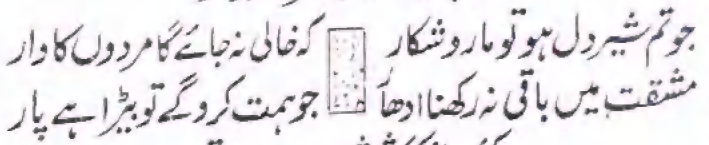 جو تم شیر دل ہو تو مارو شکار کہ خالی نہ جائے گا مردوں کا وار
مشقت میں باقی نہ رکھنا ادھار جو ہمت کرو گے تو بیڑا ہے پار